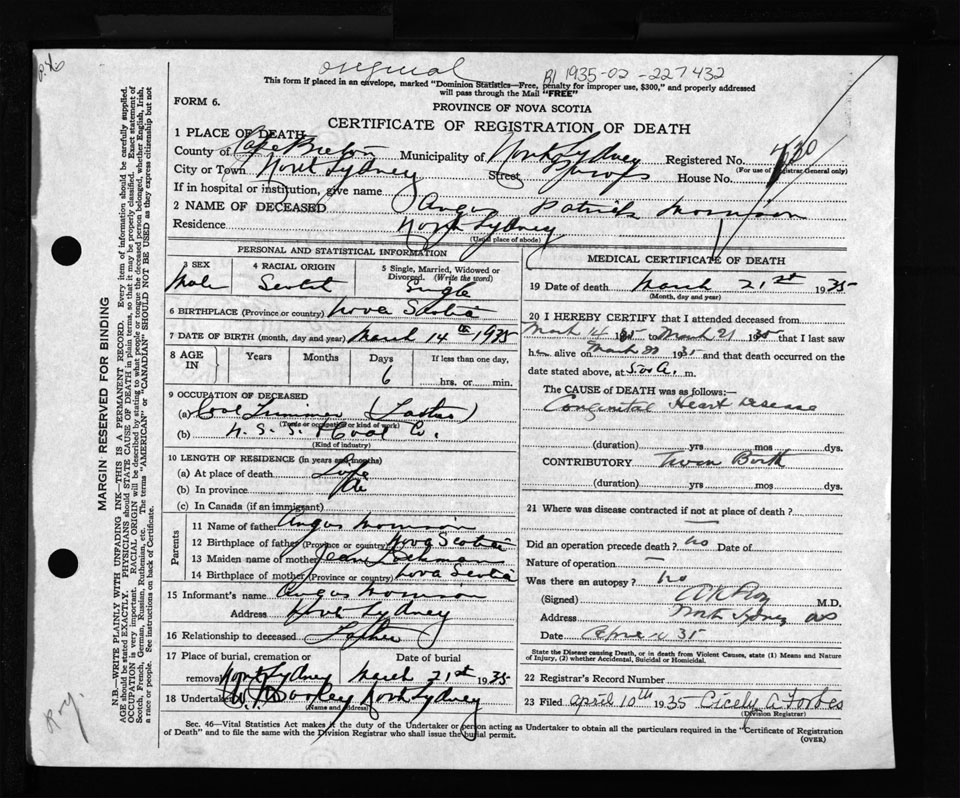 original
B1 1935-02-227432
This form if placed in an envelope, marked "Dominion Statistics—Free, penalty for improper use, $300," and properly addressed
will pass through the Mail "FREE"
FORM 6.
PROVINCE OF NOVA SCOTIA
CERTIFICATE OF REGISTRATION OF DEATH
1 PLACE OF DEATH
County of Cape Breton Municipality of North Sydney Registered No. 430
(For use of Registrar General only)
City or Town North Sydney Street House No.
If in hospital or institution, give name
2 NAME OF DECEASED Angus Patrick Morrison
Residence North Sydney
(Usual place of abode)
PERSONAL AND STATISTICAL INFORMATION
3 SEX Male
4 RACIAL ORIGIN Scotch
5 Single, Married, Widowed or Divorced. (Write the word) Single
6 BIRTHPLACE (Province or country) Nova Scotia
7 DATE OF BIRTH (month, day and year) March 14th 1935
8 AGE IN Years Months Days If less than one day,
6 hrs. or min.
9 OCCUPATION OF DECEASED
(a) (Father)
(Trade or occupation or kind of work)
(b) N. S. S. & Coal Co.
(Kind of industry)
10 LENGTH OF RESIDENCE (in years and months)
(a) At place of death Life
(b) In province
(c) In Canada (if an immigrant)
Parents
11 Name of father Angus Morrison
12 Birthplace of father (Province or country) Nova Scotia
13 Maiden name of mother Jean
14 Birthplace of mother (Province or country) Nova Scotia
15 Informant's name Angus Morrison
Address North Sydney
16 Relationship to deceased Father
17 Place of burial, cremation or removal North Sydney Date of burial March 21st 1935
18 Undertaker W. Dooley North Sydney
(Name and Address)
MEDICAL CERTIFICATE OF DEATH
19 DATE OF DEATH March 21st 1935
(Month, day and year)
20 I HEREBY CERTIFY that I attended deceased from
March 14 1935 to March 21 1935 that I last saw
h alive on March 1935 and that death occurred on
date stated above, at 5 a. m.
The CAUSE OF DEATH was as follows:
Congenital Heart Disease
(duration) yrs mos dys.
CONTRIBUTORY Twin Birth
(duration) yrs mos dys.
21 Where was disease contracted if not at place of death?
Did an operation precede death? no Date of
Nature of operation
Was there an autopsy? no
(Signed) M.D.
Address North Sydney NS
Date April 35
State the Disease causing Death, or in death from Violent Causes, state (1) Means and
Nature of Injury, (2) whether Accidental, Suicidal or Homicidal.
22 Registrar's Record Number
23 Filed April 10th 1935 Cicely A Forbes
(Division Registrar)
Sec. 46—Vital Statistics Act makes it the duty of the Undertaker or person acting as Undertaker to obtain all the particulars required in the "Certificate of Registration
of Death" and to file the same with the Division Registrar who shall issue the burial permit. (OVER)
MARGIN RESERVED FOR BINDING
N.B.—WRITE PLAINLY WITH UNFADING INK—THIS IS A PERMANENT RECORD. Every item of information should be carefully supplied.
AGE should be stated EXACTLY. PHYSICIANS should STATE CAUSE OF DEATH in plain terms, so that it may be properly classified. Exact statement of
OCCUPATION is very important. RACIAL ORIGIN will be described by stating to what people or tongue the deceased person belonged, whether English, Irish,
Scotch, French, German, Russian, Ruthenian, etc. The terms "AMERICAN" or "CANADIAN" SHOULD NOT BE USED as they express citizenship but not
a race or people. See instructions on back of Certificate.